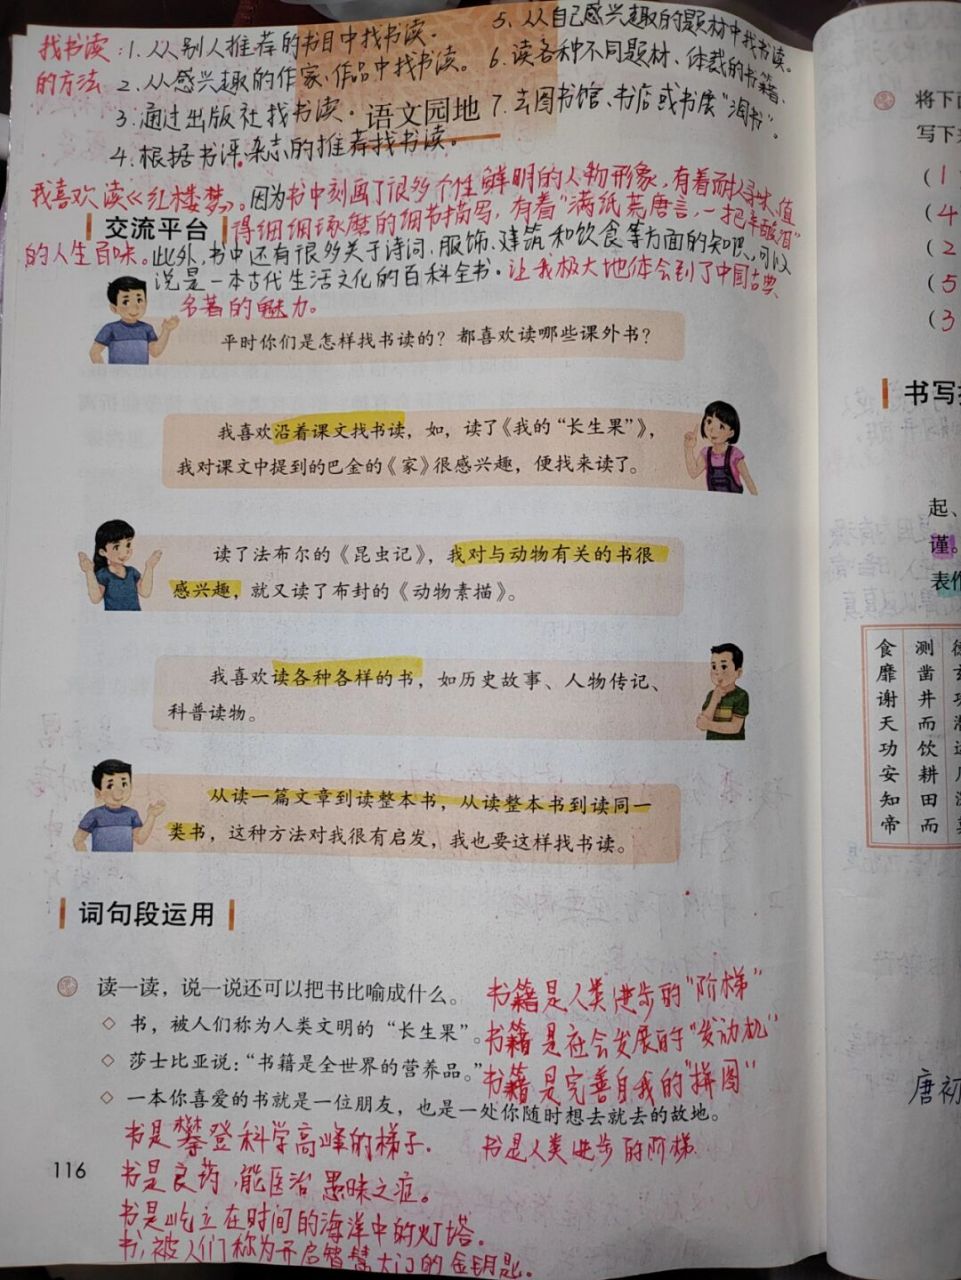 找书读：1.从别人推荐的书目中找书读.
的方法 2.从感兴趣的作家、作品中找书读。
3.通过出版社找书读.
4.根据书评、杂志的推荐找书读。
5.从自己感兴趣的题材中找书读。
6.读各种不同题材、体裁的书籍.
7.去图书馆、书店或书屋"淘书"。
语文园地
我喜欢读《红楼梦》。因为书中刻画了很多个性鲜明的人物形象,有着耐人寻味、值
得细细琢磨的细节描写,有着"满纸荒唐言,一把辛酸泪"
的人生百味。此外,书中还有很多关于诗词、服饰、建筑和饮食等方面的知识,可以
说是一本古代生活文化的百科全书.让我极大地体会到了中国古典
名著的魅力。
交流平台
平时你们是怎样找书读的？都喜欢读哪些课外书？
我喜欢沿着课文找书读，如，读了《我的“长生果”》，
我对课文中提到的巴金的《家》很感兴趣，便找来读了。
读了法布尔的《昆虫记》，我对与动物有关的书很
感兴趣，就又读了布封的《动物素描》。
我喜欢读各种各样的书，如历史故事、人物传记、
科普读物。
从读一篇文章到读整本书，从读整本书到读同一
类书，这种方法对我很有启发，我也要这样找书读。
词句段运用
读一读，说一说还可以把书比喻成什么。
书籍是人类进步的"阶梯"
◇ 书，被人们称为人类文明的“长生果”。
书籍是社会发展的"发动机"
◇ 莎士比亚说：“书籍是全世界的营养品。”
书籍是完善自我的"拼图"
◇ 一本你喜爱的书就是一位朋友，也是一处你随时想去就去的故地。
书是攀登科学高峰的梯子.
书是人类进步的阶梯.
书是良药,能医治愚昧之症。
书是屹立在时间的海洋中的灯塔.
书,被人们称为开启智慧大门的金钥匙.
116
将下面
写下来
(1
(4
(2
(5
(3
书写
起、
谨。
表作
食 测
靡 凿
谢 井
天 而
功 饮
安 耕
知 田
帝 而
唐初